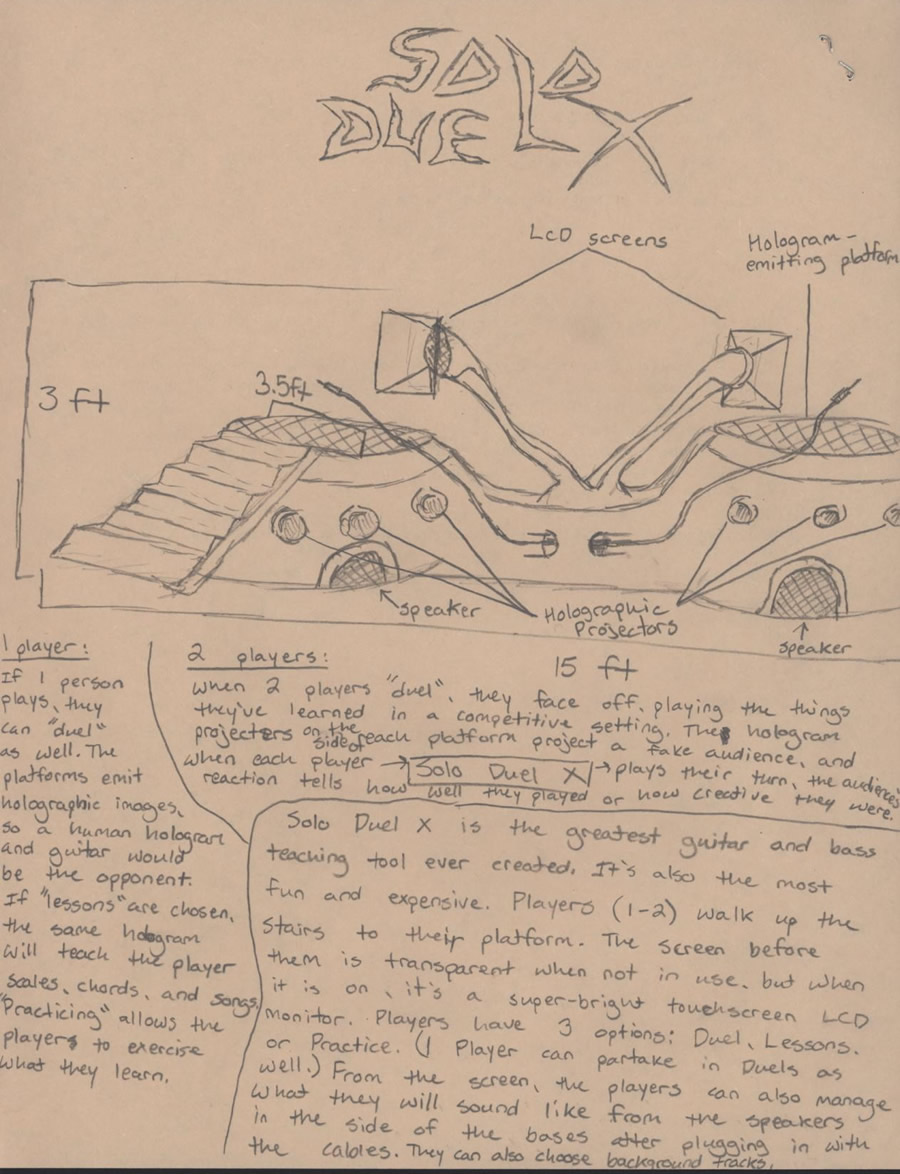 SOLO
DUEL X
LCD screens
Hologram-
emitting platform
3 ft
3.5ft
speaker
Holographic
Projectors
speaker
15 ft
1 player:
If 1 person
plays, they
can "duel"
as well. The
platforms emit
holographic images,
so a human hologram
and guitar would
be the opponent.
If "lessons" are chosen,
the same hologram
will teach the player
scales, chords, and songs.
"Practicing" allows the
players to exercise
what they learn.
2 players:
When 2 players "duel", they face off, playing the things
they've learned in a competitive setting. The hologram
projectors on the side of each platform project a fake audience, and
when each player → Solo Duel X → plays their turn, the audience's
reaction tells how well they played or how creative they were.
Solo Duel X is the greatest guitar and bass
teaching tool ever created. It's also the most
fun and expensive. Players (1-2) walk up the
stairs to their platform. The screen before
them is transparent when not in use, but when
it is on, it's a super-bright touchscreen LCD
monitor. Players have 3 options: Duel, Lessons,
or Practice. (1 Player can partake in Duels as
well.) From the screen, the players can also manage
what they will sound like from the speakers
in the side of the bases after plugging in with
the cables. They can also choose background tracks.